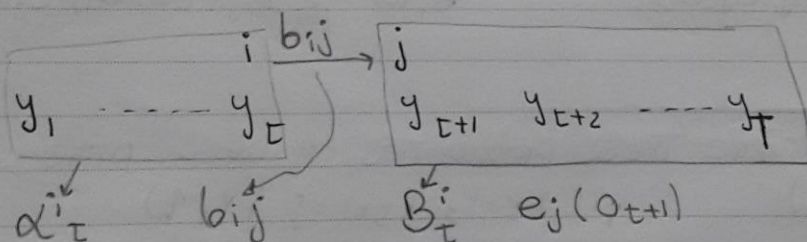 i bij j
y1 ------ yt yt+1 yt+2 ---- yT
αit bij Bit ej(Ot+1)